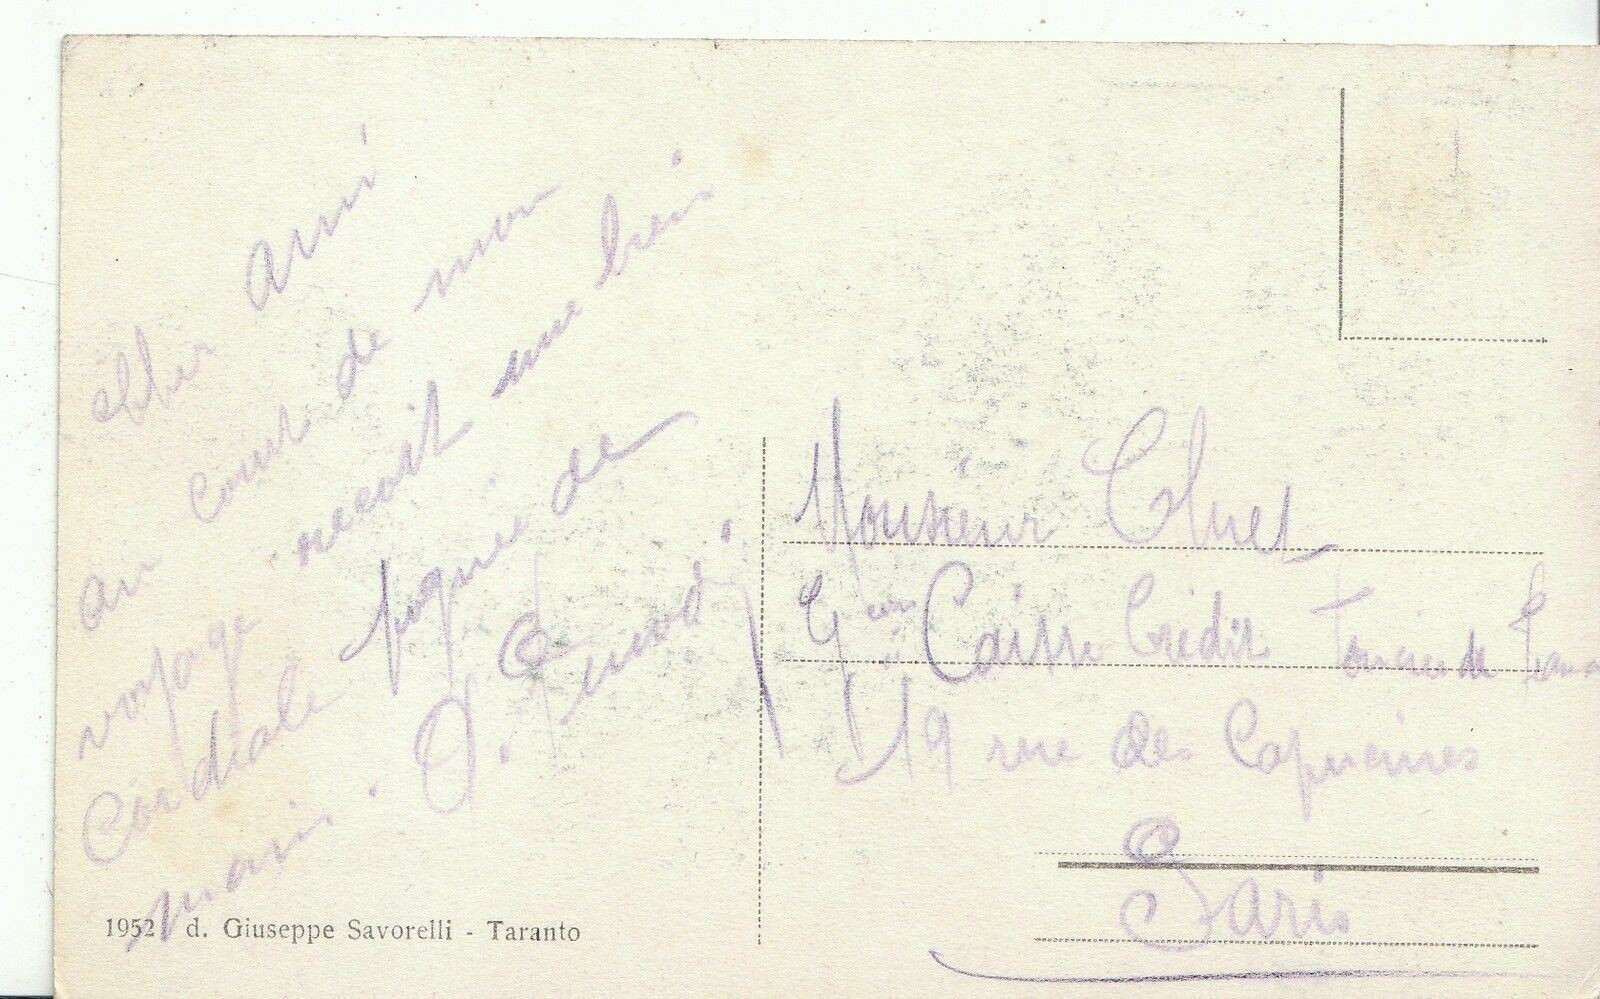 cher ami
au cour de mon
voyage recoit une bien
Cordiale pognee de
main.
Monsieur
Caisse Crédit Foncier de
19 rue des Capucines
Paris
1952 d. Giuseppe Savorelli - Taranto